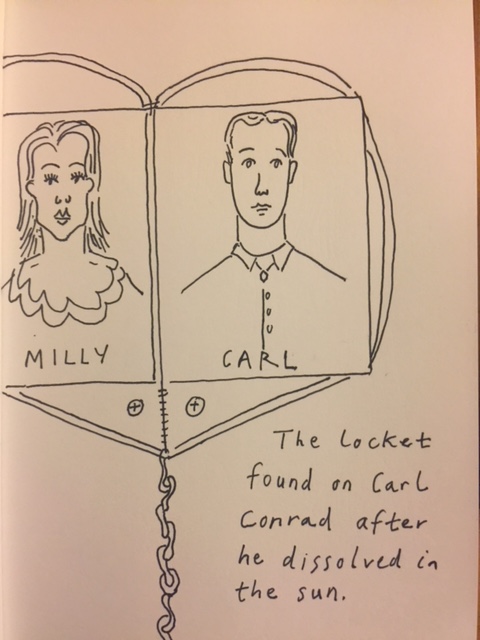 MILLY
CARL
The locket
found on Carl
Conrad after
he dissolved in
the sun.